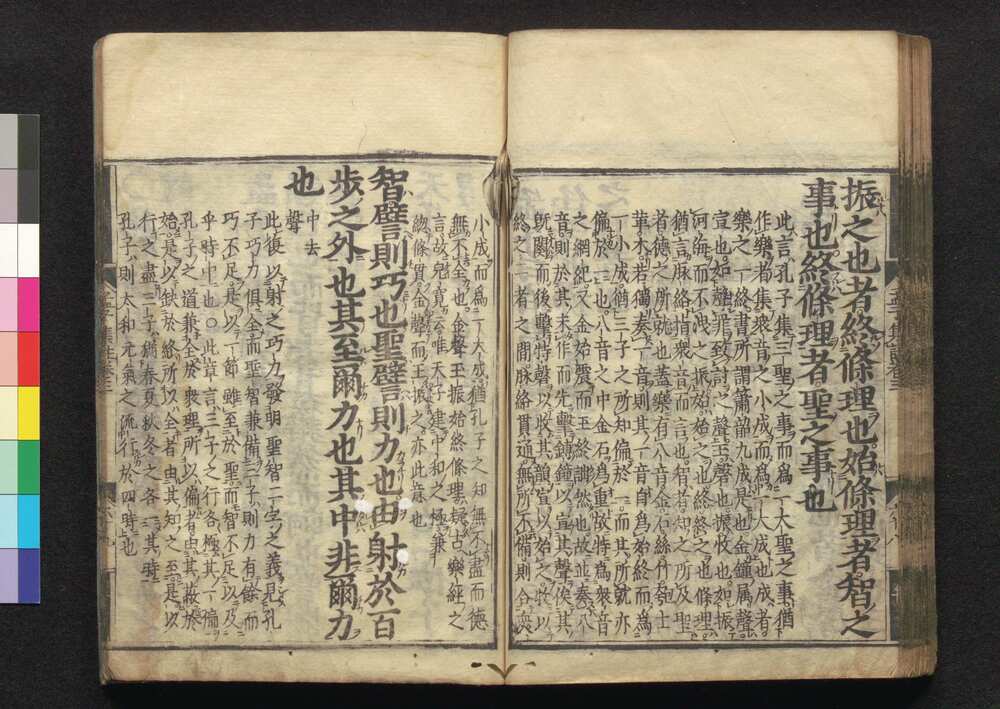 振之也者終條理也始條理者智之
事也終條理者聖之事也
此言孔子集三聖之事而爲一大聖之事猶
作樂者集衆音之小成而爲一大成也成者
樂之一終書所謂簫韶九成是也金鐘屬聲
宣也如聲罪致討之聲玉磬也振收也如振
河海而不洩之振始始之也終終之也條理
猶言脉絡指衆音而言也智者知之所及聖
者德之所就也蓋樂有八音金石絲竹匏土
革木若獨奏一音則其一音自爲始終而爲
一小成猶三子之所知偏於一而其所就亦
偏於一也八音之中金石爲重故特爲衆音
之綱紀又金始震而玉終詘然也故並奏八
音則於其未作而先擊鎛鐘以宣其聲俟其
旣闋而後擊特磬以收其韻宣以始之收以
終之二者之間脉絡貫通無所不備則合衆
小成而爲一大成猶孔子之知無不盡而德
無不全也金聲玉振始終條理疑古樂經之
言故兒寬云唯天子建中和之極兼
緫條貫金聲而玉振之亦此意也
智譬則巧也聖譬則力也由射於百
步之外也其至爾力也其中非爾力
也
中去
聲
此復以射之巧力發明聖智二字之義見孔
子巧力俱全而聖智兼備三子則力有餘而
巧不足是以一節雖至於聖而智不足以及
乎時中也○此章言三子之行各極其一偏
孔子之道兼全於衆理所以偏者由其蔽於
始是以缺於終所以全者由其知之至是以
行之盡三子猶春夏秋冬之各一其時
孔子則太和元氣之流行於四時也